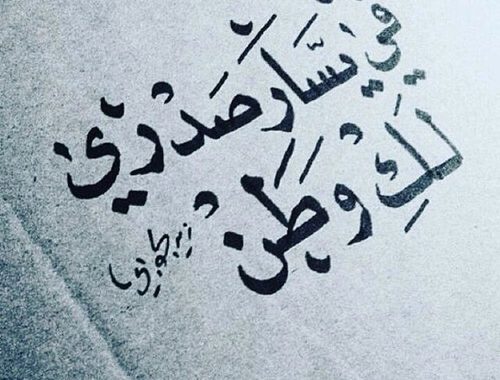 في يَسَّار صَدْري
لَكِ وَطَنْ